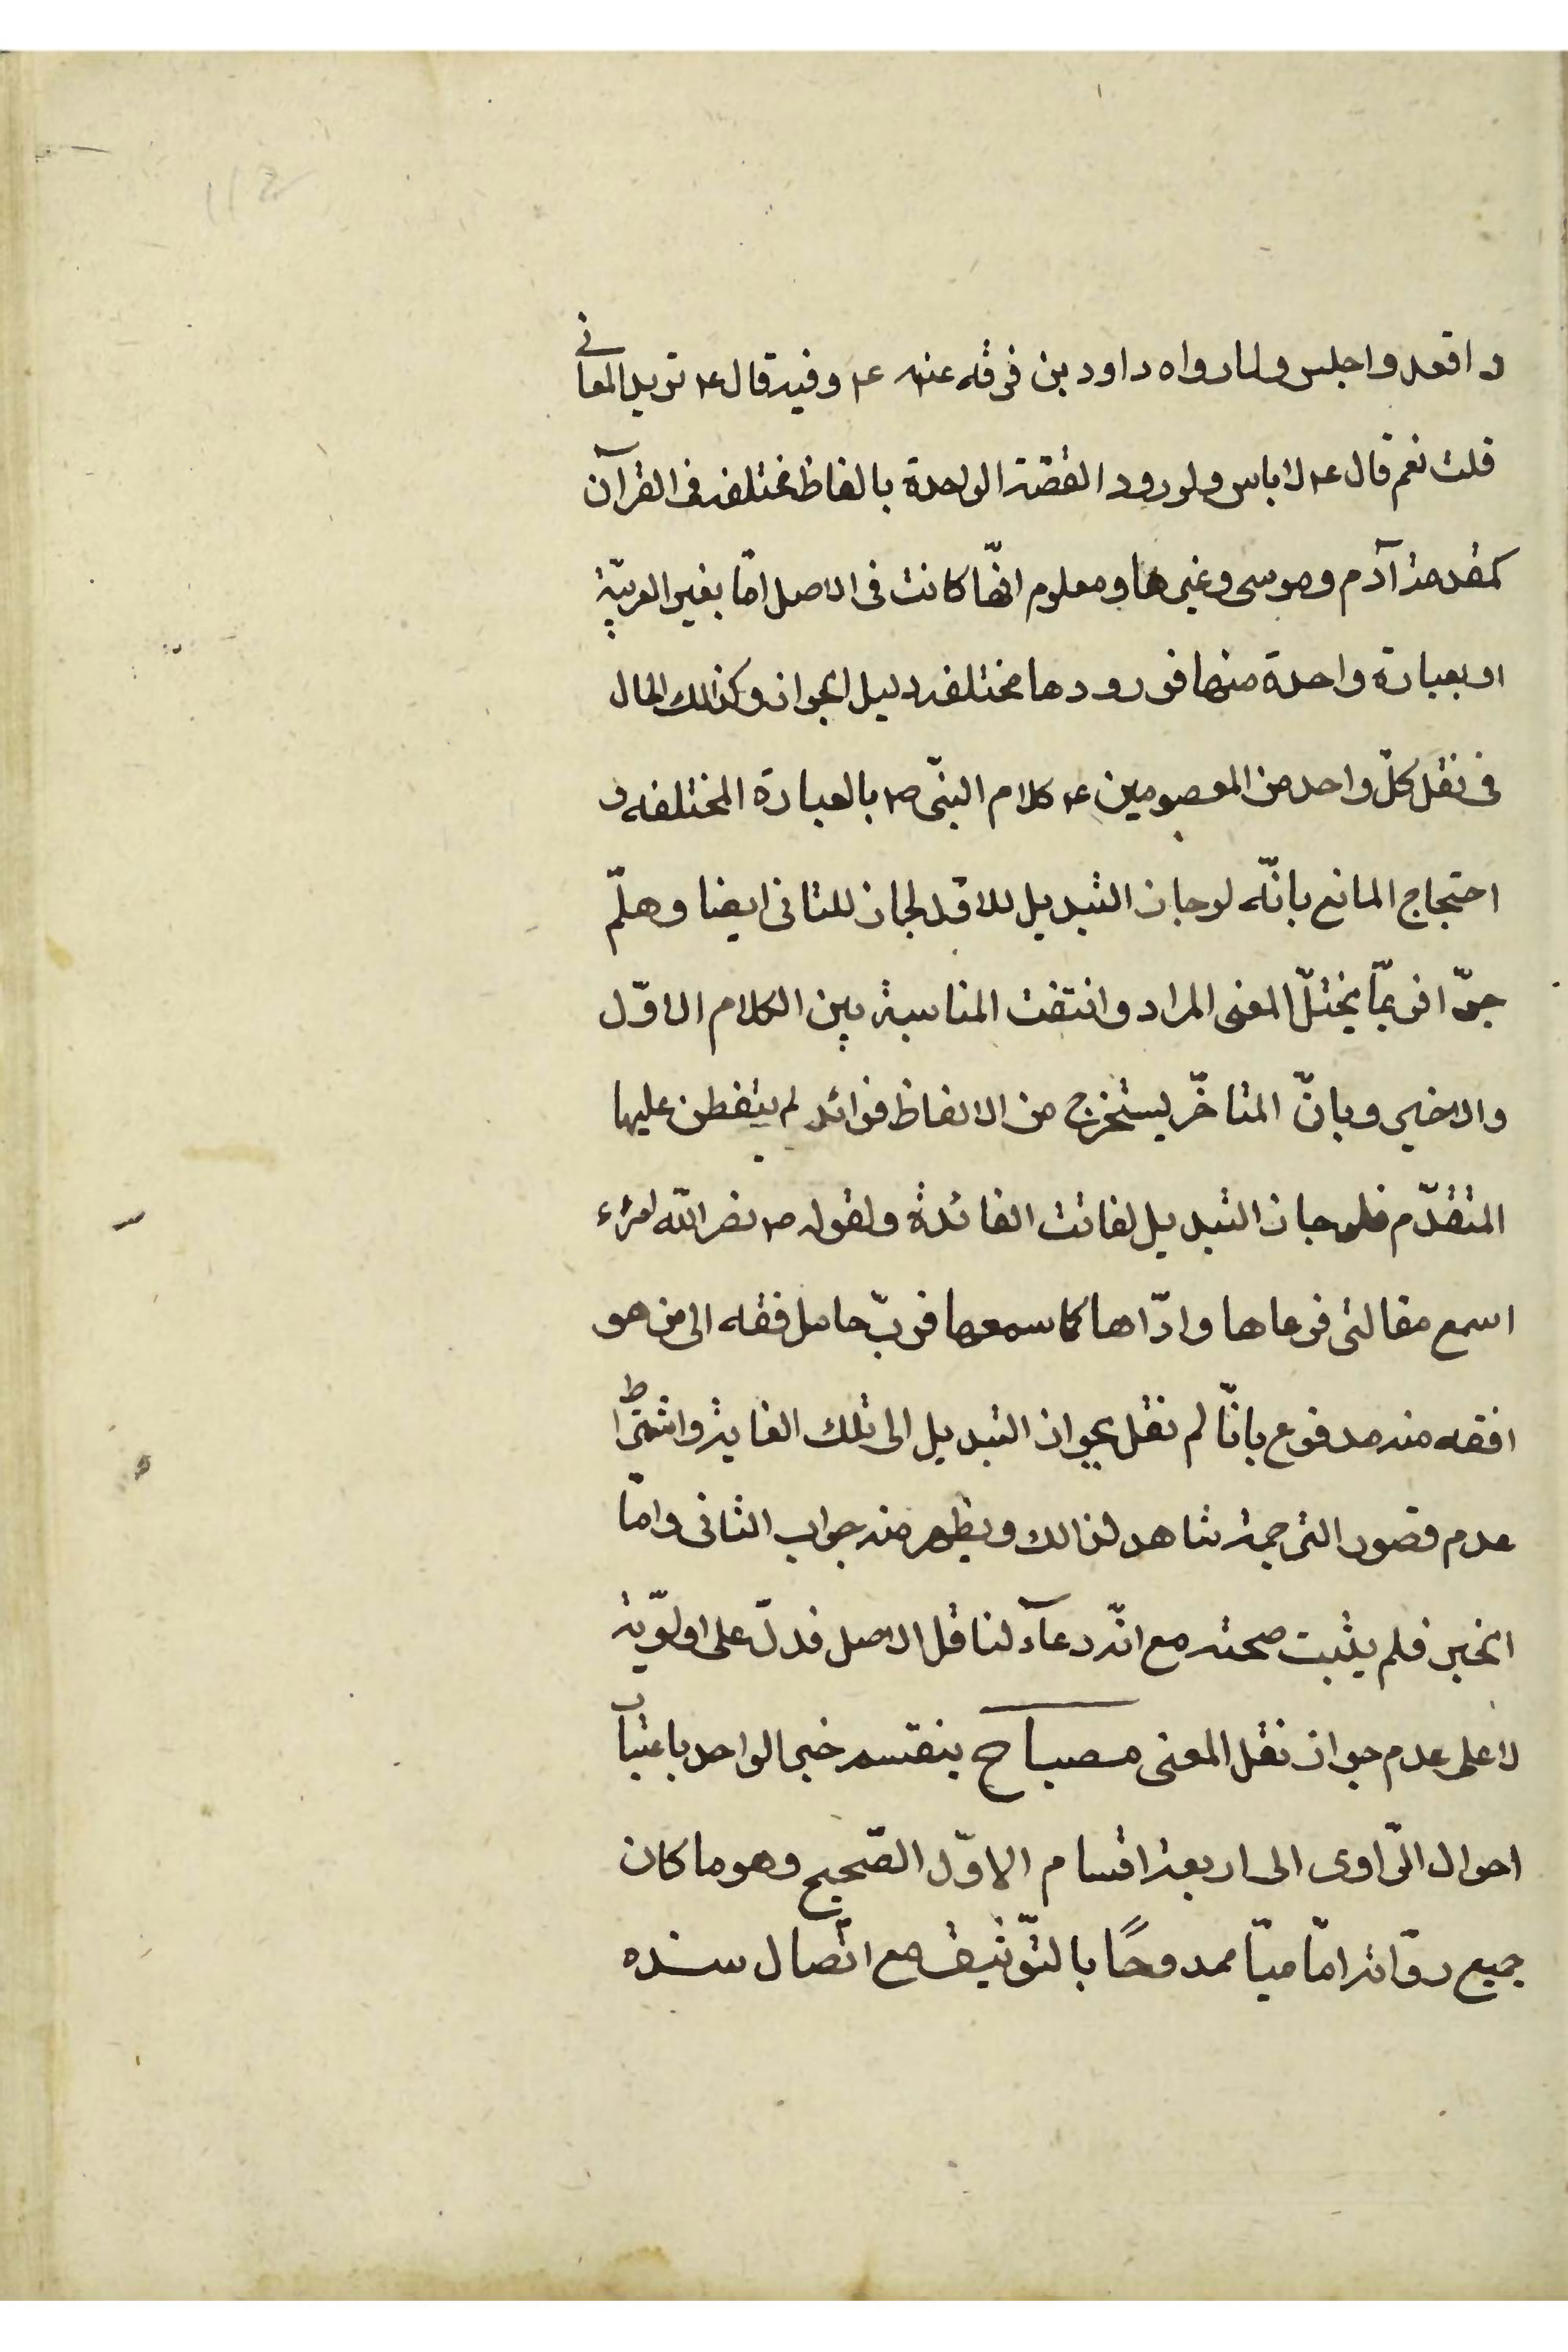 و اقعد واجلس ولما رواه داود بن فرقه عنه ع وفيه قال ع تريد المعانى
قلت نعم قال ع لا باس ولورود القصّة الواحدة بالفاظ مختلفه فى القرآن
كقصة آدم وموسى وغيرها ومعلوم انّها كانت فى الاصل امّا بغير العربيّة
او بعبارة واحدة منها فورودها مختلفه دليل الجواز وكذالك الحال
فى نقل كلّ واحد من المعصومين ع كلام النبىّ ص بالعبارة المختلفه و
احتجاج المانع بانّه لو جاز التبديل للاوّل لجاز للثانى ايضا وهلمّ
جرّا فربّما يختلّ المعنى المراد وانتفت المناسبة بين الكلام الاوّل
والاخير وبانّ المتاخّر يستخرج من الالفاظ فوائد لم يتفطن عليها
المتقدّم فلو جاز التبديل لفاتت الفائدة ولقوله ص نضر اللّه امرء
اسمع مقالتى فوعاها وادّاها كما سمعها فربّ حامل فقه الى من هو
افقه منه مدفوع بانّا لم نقل بجواز التبديل الى تلك الغاية واشتراط
عدم قصور الترجمة شاهد لذالك ويظهر منه جواب الثانى وامّا
الخبر فلم يثبت صحته مع انّه دعآء لناقل الاصل فدلّ على اولوّية
لا على عدم جواز نقل المعنى مصباح ينقسم خبر الواحد باعتبار
احوال الرّاوى الى اربعة اقسام الاوّل الصّحيح وهو ما كان
جميع روّاته امّاميّا ممدوحًا بالتّوثيق مع اتّصال سنده